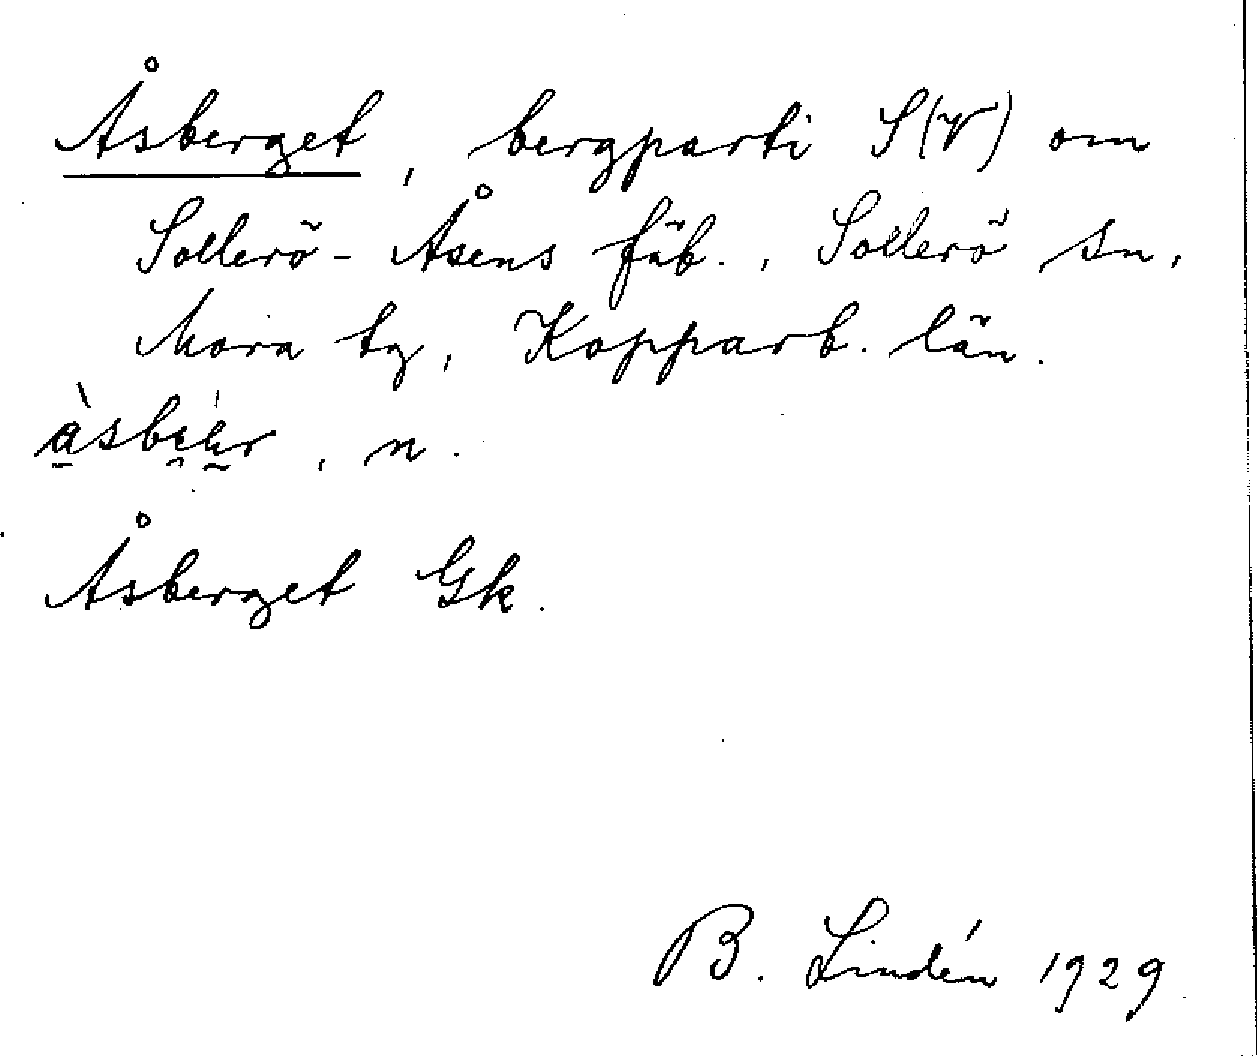 Åsberget, bergparti S(V) om
Sollerö-Åsens fäb., Sollerö sn,
Mora tg, Kopparb. län.
n.
Åsberget Gk.
B. Lindén 1929